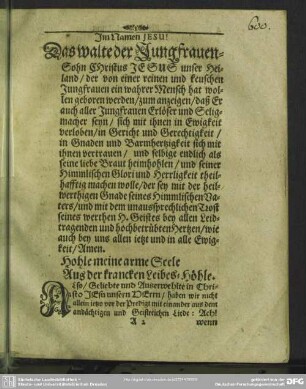 600.
Im Namen JESU!
Das walte der Jungfrauen-
Sohn Christus JESUS unser Hei-
land/ der von einer reinen und keuschen
Jungfrauen ein wahrer Mensch hat wol-
len geboren werden/ zum anzeigen/ daß Er
auch aller Jungfrauen Erlöser und Selig-
macher seyn/ sich mit ihnen in Ewigkeit
verloben/ in Gericht und Gerechtigkeit/
in Gnaden und Barmhertzigkeit sich mit
ihnen vertrauen/ und selbige endlich als
seine liebe Braut heimholen/ und seiner
Himmlischen Glori und Herrligkeit theil-
hafftig machen wolle/ der sey mit der heil-
werthigen Gnade seines Himmlischen Va-
ters/ und mit dem unaussprechlichen Trost
seines werthen H. Geistes bey allen Leid-
tragenden und hochbetrübten Hertzen/ wie
auch bey uns allen ietzt und in alle Ewig-
keit/ Amen.
Hohle meine arme Seele
Aus der krancken Leibes-Höhle.
Also/ Geliebte und Auserwehlte in Chri-
sto JEsu unserm HErrn/ haben wir nicht
allein ietzo vor der Predigt mit einander aus dem
andächtigen und Geistreichen Liede: Ach!
A 2 wenn